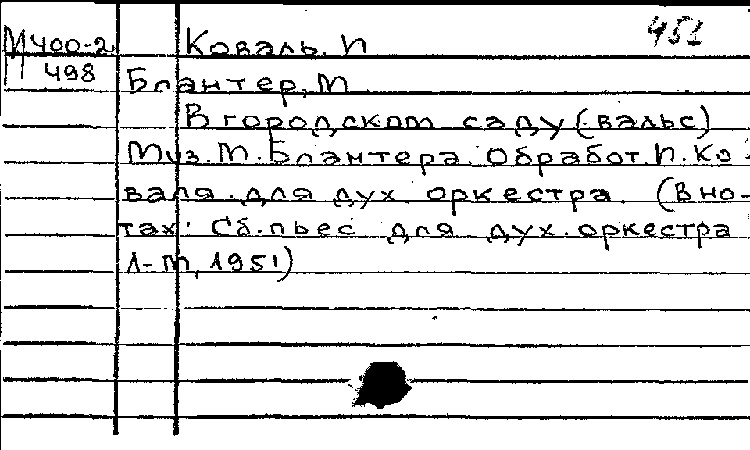 М400-2 Коваль. П 451
П 498
Блантер, М
В городском саду (вальс)
Муз. М. Блантера. Обработ. П. Ко-
валя. для дух. оркестра. (В но-
тах: Сб. пьес для дух. оркестра
Л-М, 1951)